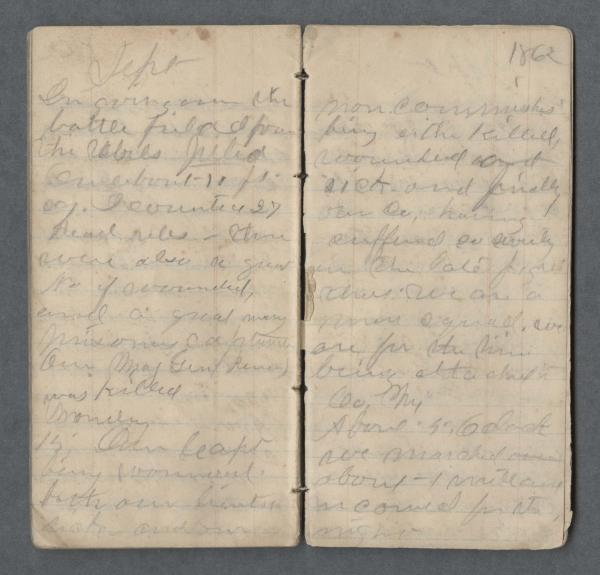 Sept
In going over the
battle field I found
the rebels piled
on about 11
I counted 27
dead rebs - there
were also a great
No of wounded,
and a great many
prisoners captured
Our Maj Gen Reno
was killed
Monday
15 Our Capt
being wounned
both our lieuts
sick and our
1862
non commiss
being either killed,
wounded and
sick and finally
our Co, having
suffered so
in the late
that we are a
mere squad, we
are for the time
being attached to
Co,
About 5, 6 clock
we marched
about 1 mile and
incamed for the
night